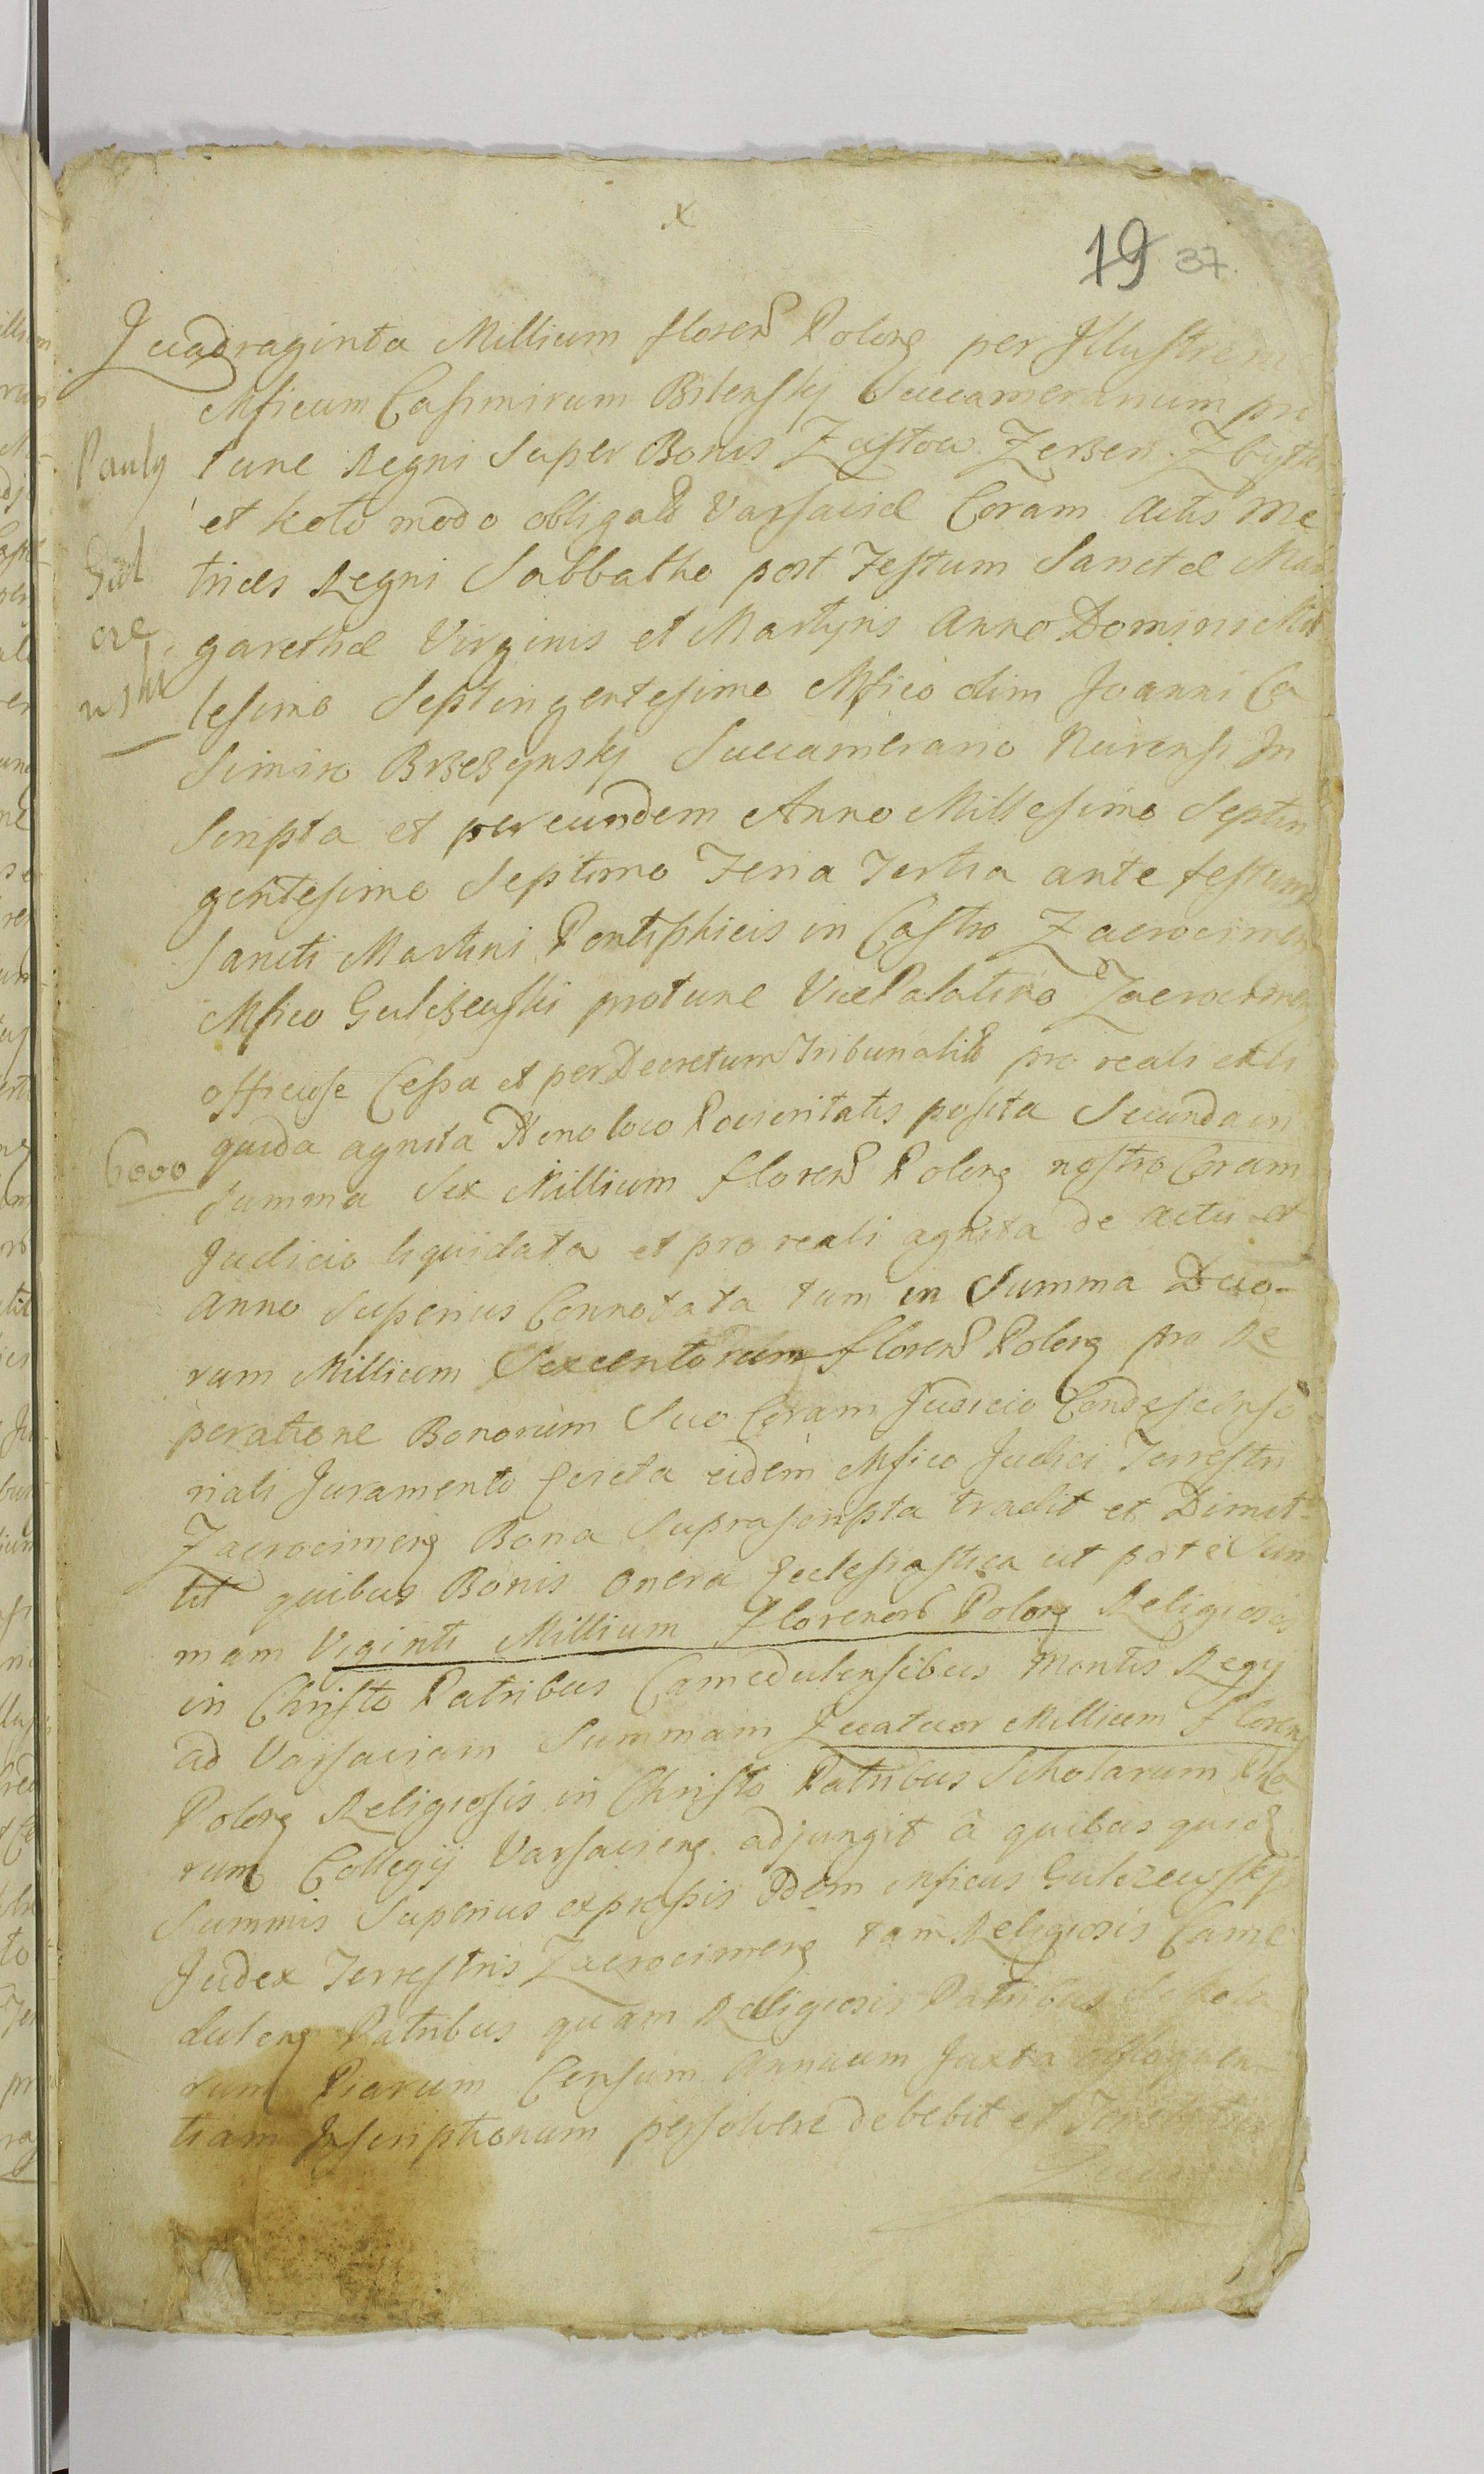 x
19 37.
Quadraginta Millium floren Polon per Illustrem
Mficum Casimirum Bilensky Succamerarium pro
Pauly
tunc Regni Super Bonis Zastow Zerzen Zbytki
et koto modo obligat Varsaviæ Coram Actis Me
Gul
trices Regni Sabbatho post Festum Sanctæ Mar
cze
garethæ Virginis et Martyris Anno Domini Mil
wski
lesimo Septingentesimo Mfico olim Joanni Ca
Simiro Brzezynsky Succamerario Nurensi In
Scripta et per eundem Anno Millesimo Septin
gentesimo Septimo Feria Tertia ante festum
Sancti Martini Pontiphicis in Castro Zacrocimen
Mfico Gulczewski protunc Vice Palatino Zacrocimen
officiose Cessa et per Decretum Tribunalit pro reali et li
quida agnita Deno loco Priоritatis posita Secunda in
6000
Summa Sex Millium floren Polon nostro Coram
Judicio liquidata et pro reali agnita de actu et
Anno Superius Connotata tum in Summa Duo-
rum Millium Sexcentorum floren Polon pro Re
peratione Bonorum Suo Coram Judicio Condescenso
riali Juramento Certa eidem Mfico Judici Terrestri
Zacrocimen Bona Suprascripta tradit et Dimit-
tit quibus Bonis onera Ecclesiastica ut pote Sum
mam Viginti Millium florenor Polon Religiosis
in Christo Patribus Camedulensibus Montis Regij
ad Varsaviam Summam Quatuor Millium floren
Polon Religiosis in Christo Patribus Scholarum Pia
rum Collegij Varsavien adjungit à quibus quid
Summis Superius expressis Idem Mficus Gulczewsky
Judex Terrestris Zacrocimen tam Religiosis Came
dulen Patribus quam Religiosis Patribus Schola
rum Piarum Censum Annuum Juxta
tiam Inscriptionum persolvere debebit et Tenebitur